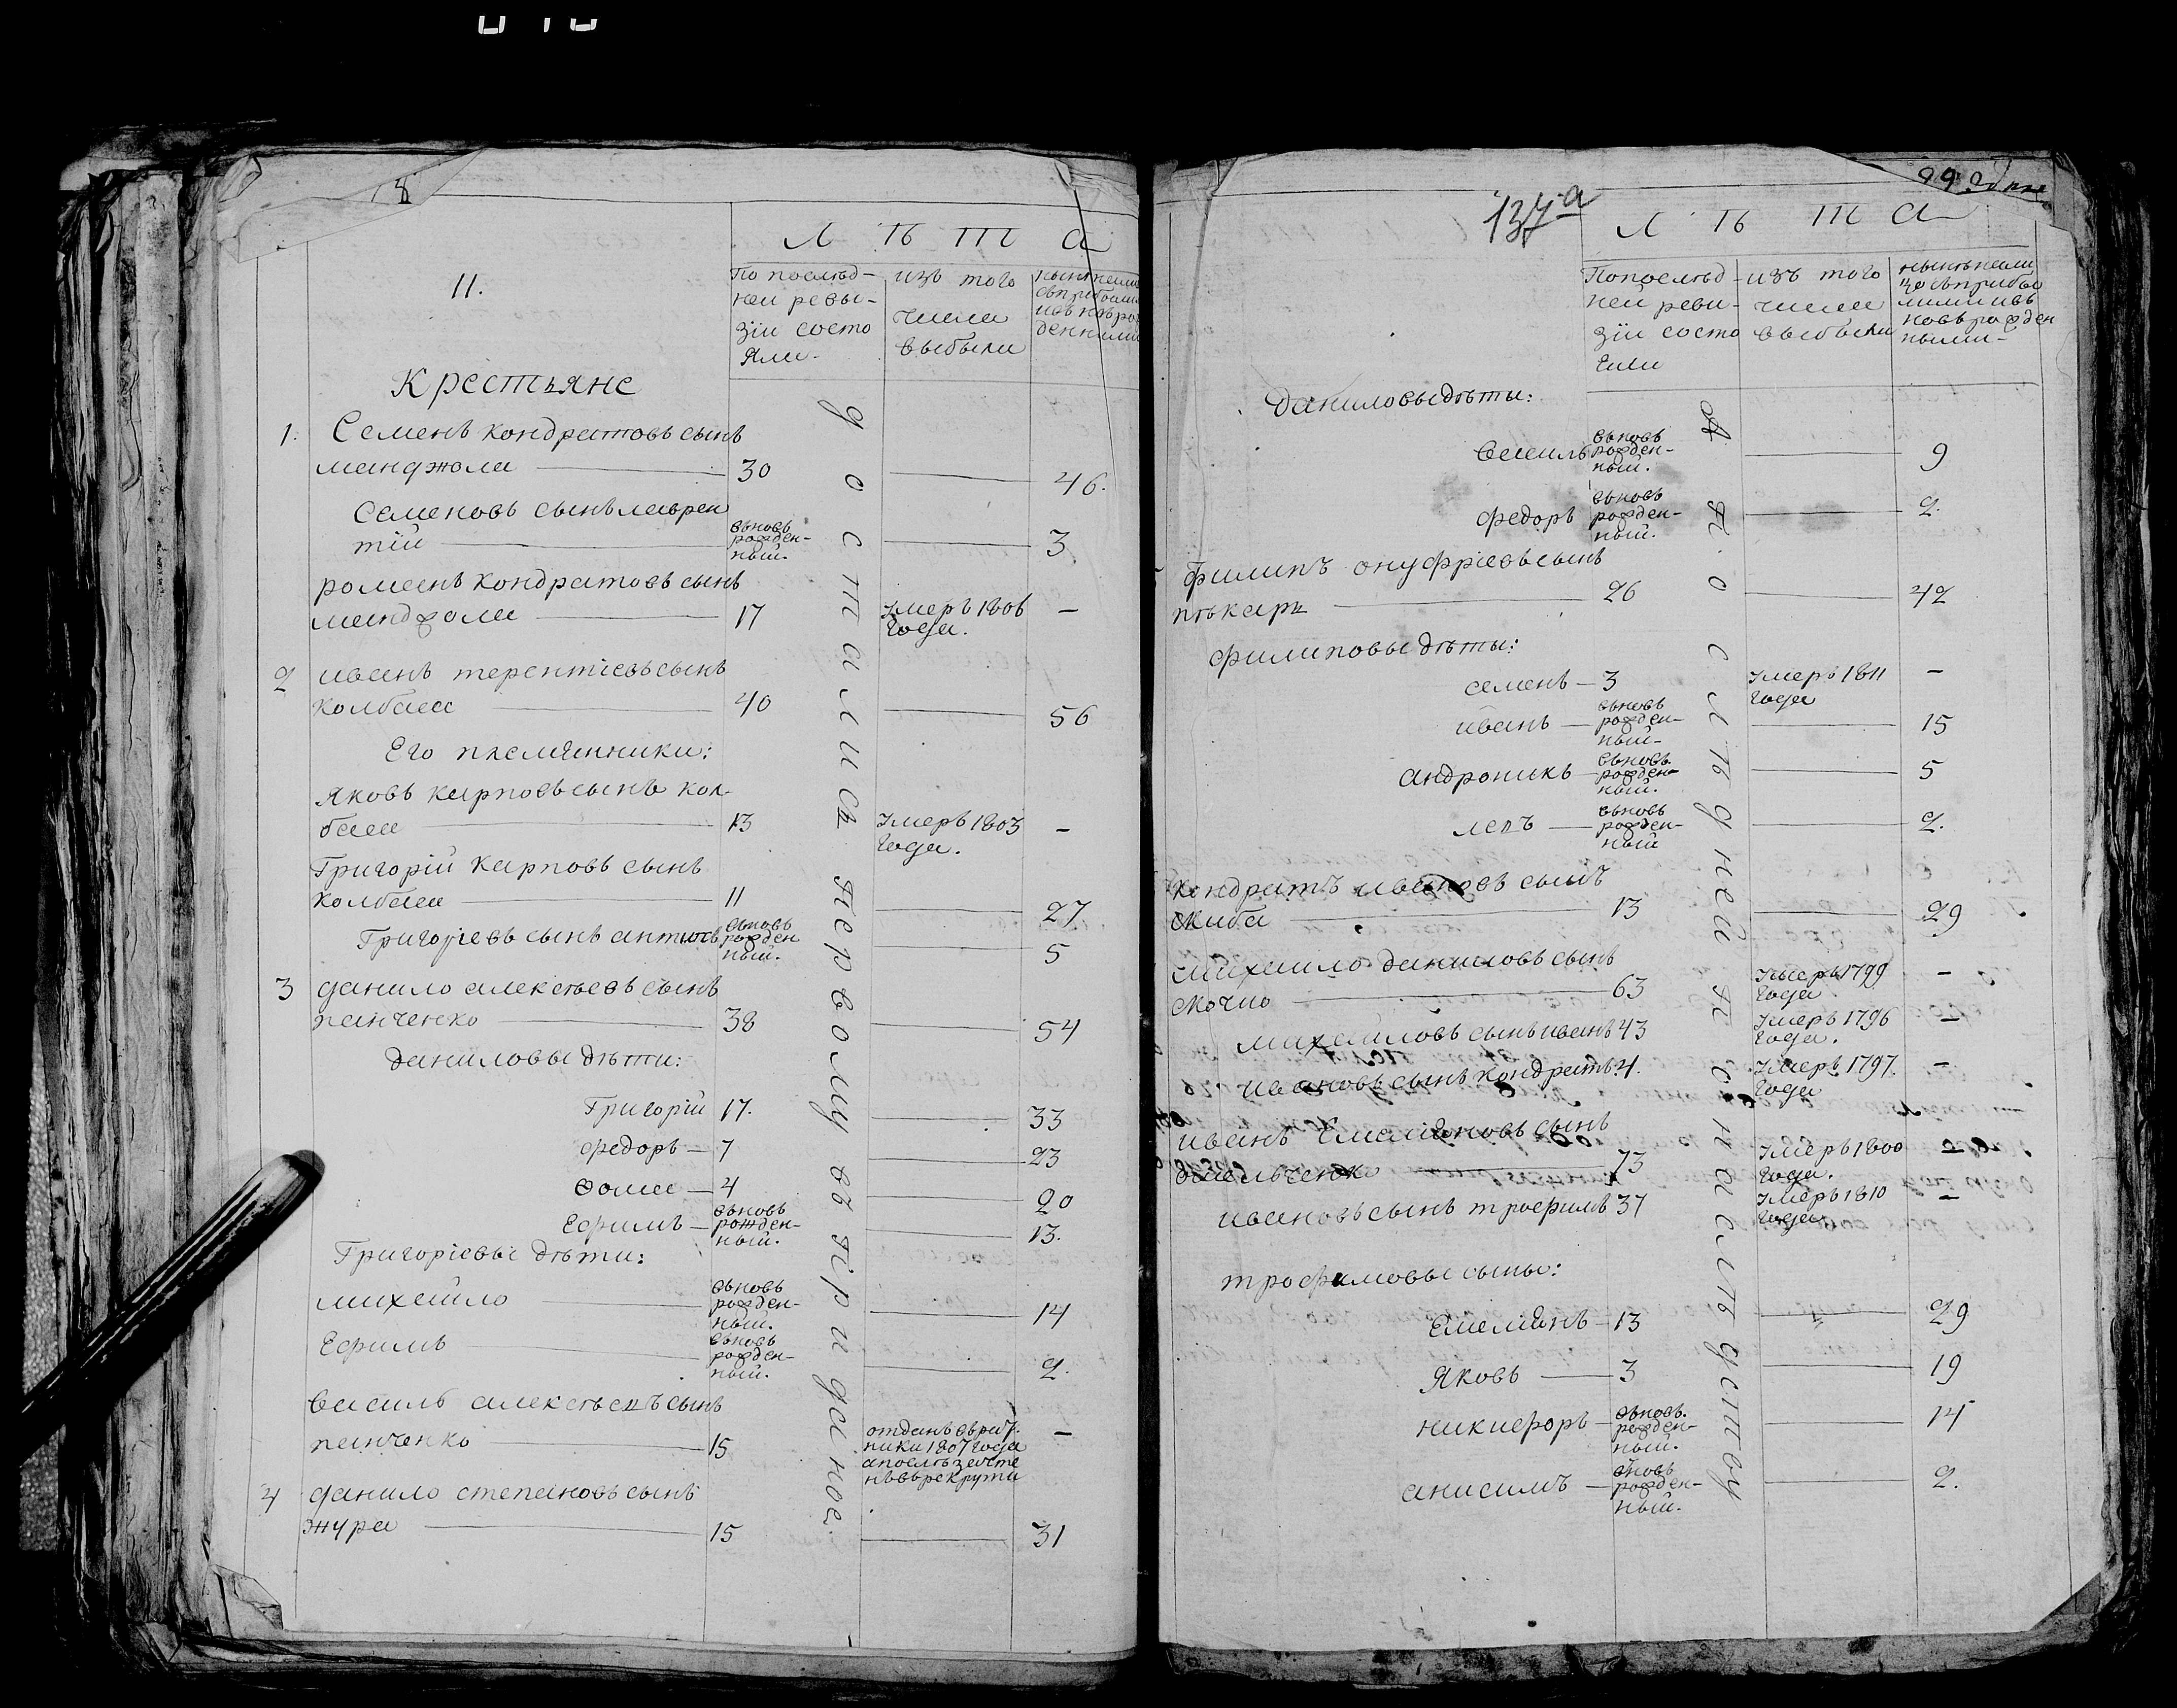 8
Л Ѣ Т А
11.
По послѣд-
ней ревы-
зіи состо
яли.
изъ того
числа
выбыли
Крестьяне
1. Семенъ кондратовъ сынъ
манджола 30 46.
Семеновъ сынъ лаврен
тій вьновь рожден-ный. 3
романъ кондратовъ сынъ
манджола 17 умеръ 1806 года. —
2 иванъ терентіевъ сынъ
колбаса 40 56
Его племянники:
яковъ карповъ сынъ кол-
баса 13 умеръ 1803 года. —
Григорій карповъ сынъ
колбаса 11 27
Григоріевъ сынъ антипъ вьновь рожден ный. 5
3 данило алексѣевъ сынъ
панченко 38 54
даниловы дѣти:
Григорій 17. 33
федоръ — 7 23
ѳома — 4 20
Ефимъ — вьновь рожден-ный. 13.
Григоріевы дѣти:
михайло вьновь рожден-ный. 14
Ефимъ вьновь рожден-ный. 2.
василь алексѣевъ сынъ
панченко 15 отданъ в рат-
ники 1807 года
а послѣ зачте
нъ въ рекруты —
4 данило степановъ сынъ
жура 15 31
до сталися первому въ придание.
137 а
99
Л Ѣ Т А
По послѣд-
ней реви-
зіи состо
яли
изъ того
числа
выбыли
нынѣ на ли
цо съ прибы
лыми и въ
новь рожден
ными-
даниловы дѣты:
василь вьновь рожден-ный. 9
федоръ вьновь рожден-ный. 2.
филипъ онуфріевъ сынъ
пѣкаръ 26 42
филиповы дѣты:
семенъ — 3 умеръ 1811 года —
иванъ — вьновь рожден-ный- 15
андроникъ — вьновь рожден-ный. 5
лепъ — вьновь рожден-ный 2.
кондратъ ивановъ сынъ
скиба 13 29
михайло даниловъ сынъ
63 умеръ 1799 года —
михайловъ сынъ иванъ 43 умеръ 1796 года. —
ивановъ сынъ кондратъ 4. умеръ 1797. года —
иванъ Емеліановъ сынъ
омельченко 73 умеръ 1800 года. —
ивановъ сынъ трофимъ 37 умеръ 1810 года —
трофимовы сыны:
Емеліянъ — 13 29
яковъ — 3 19
никифоръ — вьновь. рожден-ный. 14
анисимъ — вновь рожден-ный. 2.